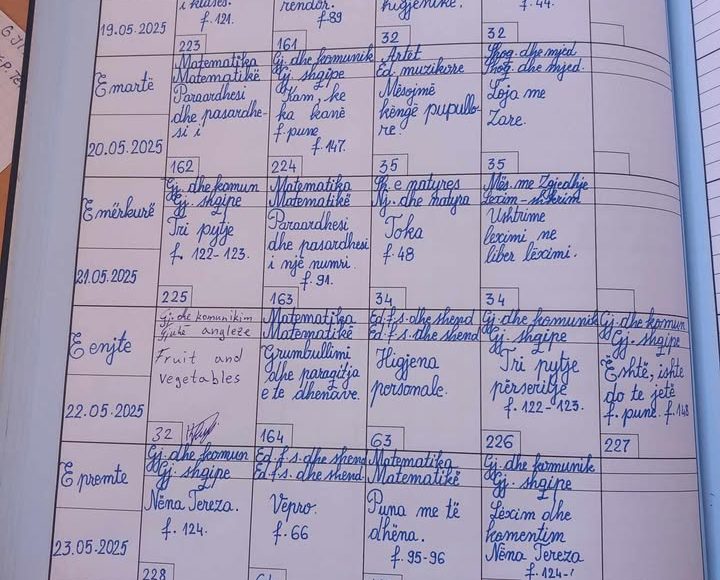 i klases.
f. 121.
rendor.
f. 89
higjenike.
f. 44.
19.05.2025
223
161
32
32
E martë
20.05.2025
Matematika
Matematikë
Paraardhesi
dhe pasardhe-
si i
162
Gj dhe komunik
Gj shqipe
Kam, ke
ka kanë
f pune
f. 147.
224
Artët
Ed muzikore
Mësojmë
këngë pupullo-
re.
35
Shoq. dhe mjed
Shoq. dhe mjed.
Loja me
Zare.
35
E mërkurë
21.05.2025
Gj. dhe komun
Gj. shqipe
Tri pytje
f. 122-123.
225
Matematika
Matematikë
Paraardhesi
dhe pasardhesi
i një numri.
f. 91.
163
Sh. e natyres
Nj. dhe natyra
Toka
f. 48
34
Mës. me Zgjedhje
Lexim-shkrim
Ushtrime
leximi ne
liber lëximi.
34
E enjte
22.05.2025
Gj. dhe komunikim
Gjuhë angleze
Fruit and
vegetables
32
Matematika
Matematikë
Grumbullimi
dhe paraqitja
e te dhenave.
164
Ed. f. s. dhe shend
Ed. f. s. dhe shend
Higjena
personale.
63
Gj. dhe komunik
Gj. shqipe
Tri pytje
përseritje
f. 122-123.
226
Gj. dhe komun
Gj. shqipe
Eshtë, ishte
do te jetë
f. pune. f. 148
227
E premte
23.05.2025
Gj. dhe komun
Gj. shqipe
Nëna Tereza.
f. 124.
228
Ed. f. s. dhe shend
Ed. f. s. dhe shend
Vepro.
f. 66
Matematika
Matematikë
Puna me të
dhëna.
f. 95-96
Gj. dhe komunik
Gj. shqipe
Lëxim dhe
komentim
Nëna Tereza
f. 124-